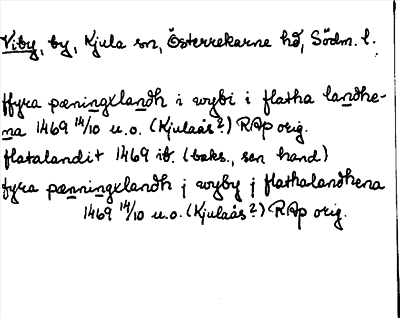 Viby, by, Kjula sn, Österrekarne hd, Södm. l.
ffyra pæningxlandh i wybi i flatha landhe-
na 1469 14/10 u.o. (Kjulaås?) RAp orig.
flatalandit 1469 ib. (baks., sen hand)
fyra pænningxlandh j wyby j flathalandhena
1469 14/10 u.o. (Kjulaås?) RAp orig.